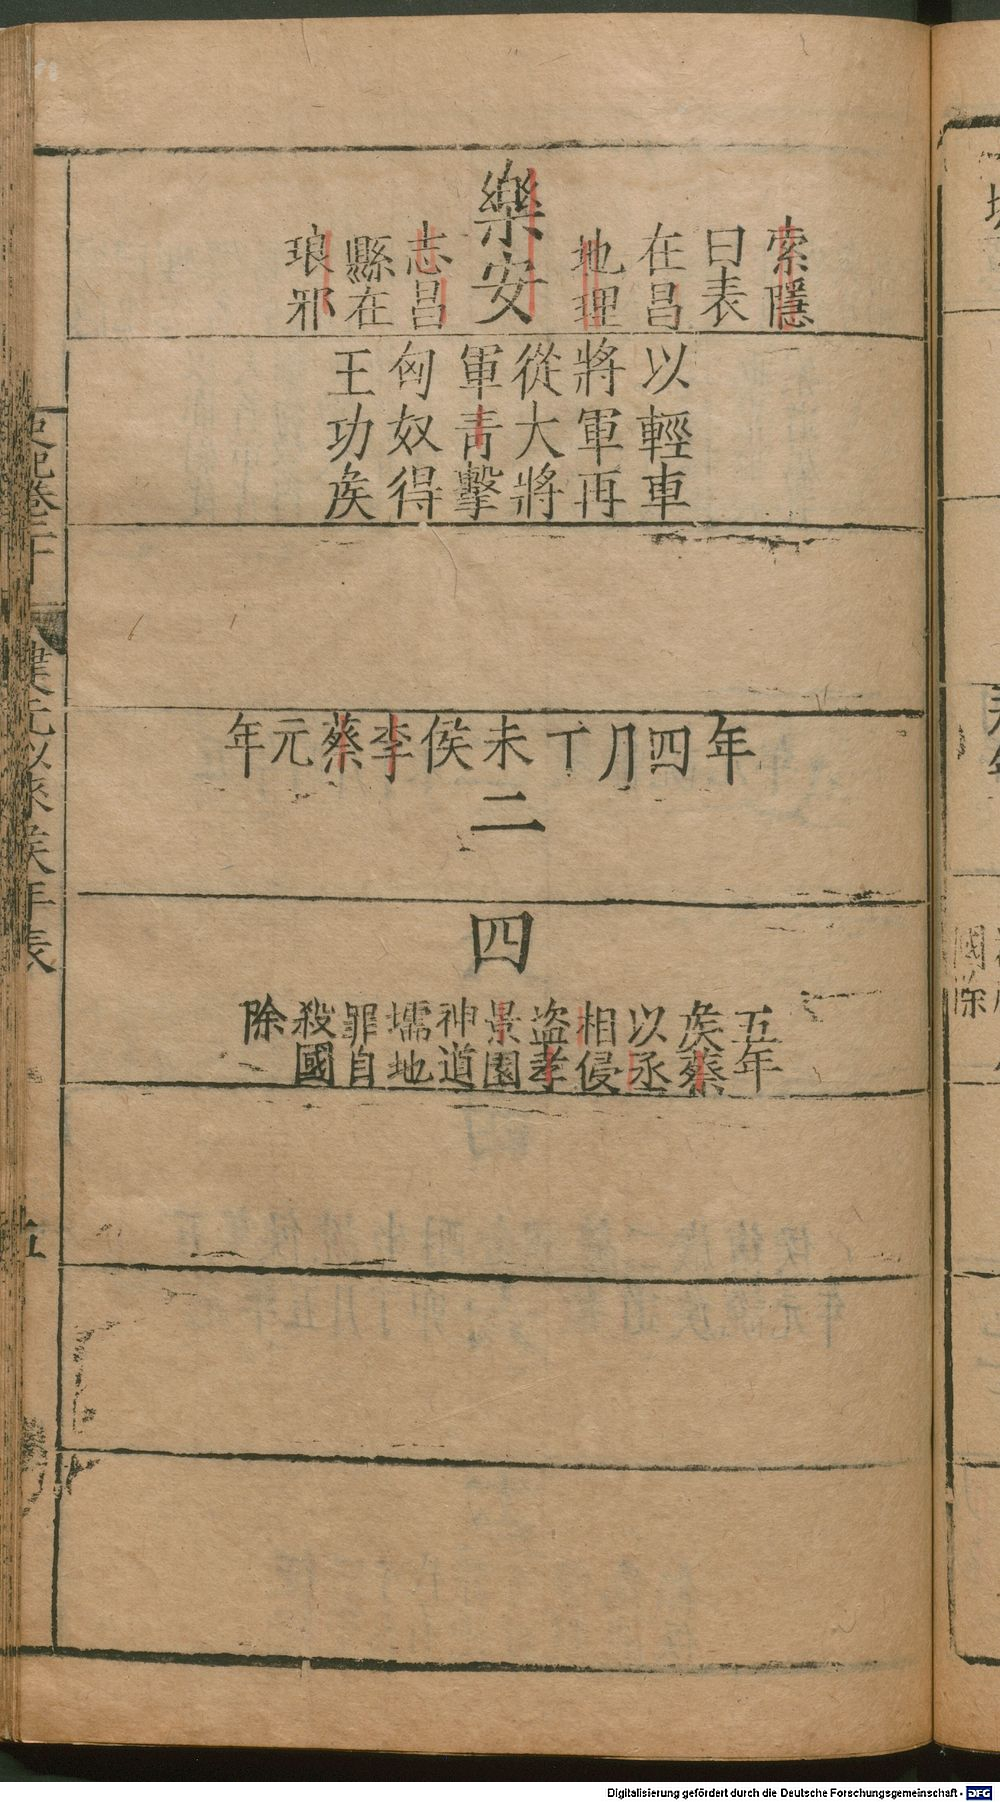 樂安
索隱
曰表
在昌
地理
志昌
縣在
琅邪
以輕車
將軍再
從大將
軍青擊
匈奴得
王功侯
年四月丁未侯李蔡元年
二
四
五年
侯蔡
以丞
相侵
盜孝
景園
神道
壖地
罪自
殺國
除
史記卷二十
漢元以來侯年表
五
國
除
Digitalisierung gefördert durch die Deutsche Forschungsgemeinschaft - DFG